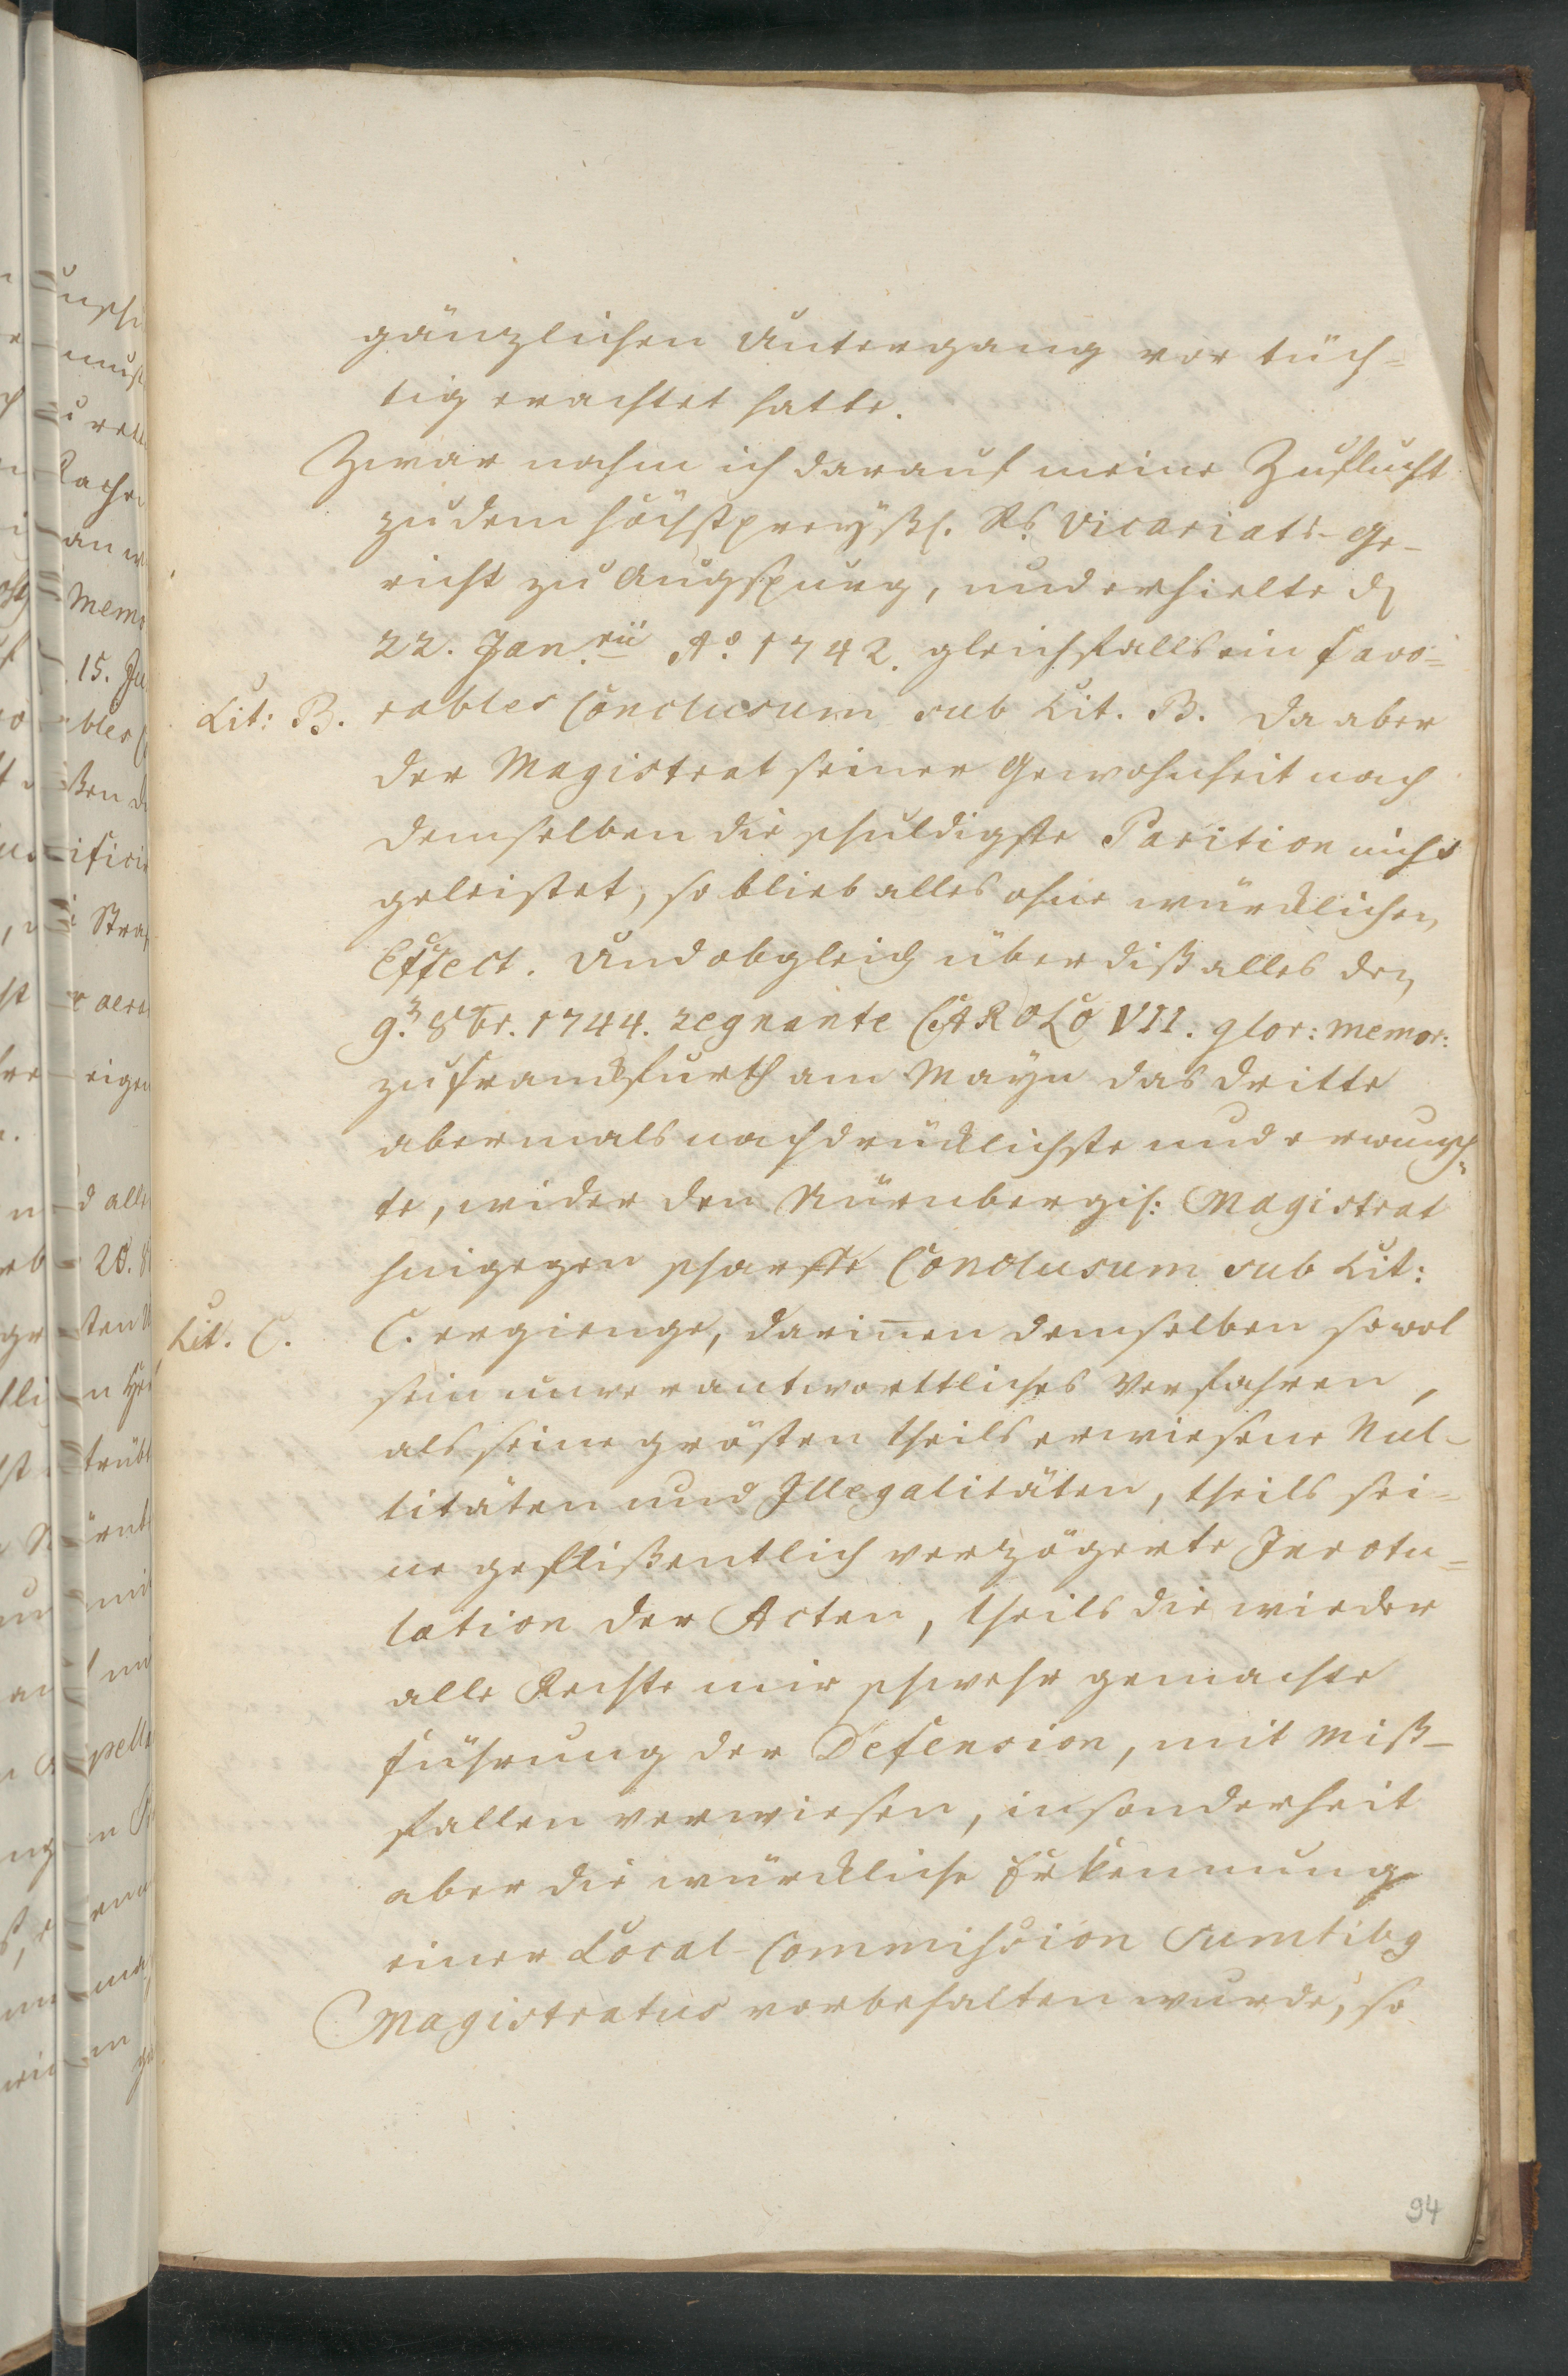 gänzlichen Untergang vor tüch=
tig erachtet hatte.
Zwar nahm ich darauf meine Zuflucht
zu dem höchstpreyßl. Rs. Vicariats-Ge-
richt zu Augspurg, und erhielte d
22. Jan.rii Aº. 1742. gleichfalls ein favo=
Lit: B. rables Conclusum sub Lit. B. Da aber
der Magistrat seiner Gewohnheit nach
demselben die schuldigste Parition nicht
geleistet, so blieb alles ohne würcklichen
Effect. Und obgleich über diß alles den
9. 8br. 1744. regnante CAROLO VII. glor: memor:
zu Franckfurth am Mayn das dritte
abermals nachdrücklichste und erwünsch=
te, wider den Nürnbergis: Magistrat
hingegen scharffe Conclusum sub Lit:
Lit. C. C. ergienge, darinen demselben sowol
sein unverantworttliches Verfahren,
als seine grösten theils erwiesene Nul-
litäten und Illegalitäten, theils sei=
ne geflißentlich verzögerte Inrotu=
lation der Acten, theils die wieder
alle Rechte mir schwehr gemachte
Führung der Defension, mit Miß-
fallen verwiesen, insonderheit
aber die würckliche Erkennung
einer Local-Commission sumtibg
Magistratus vorbehalten wurde, so
94